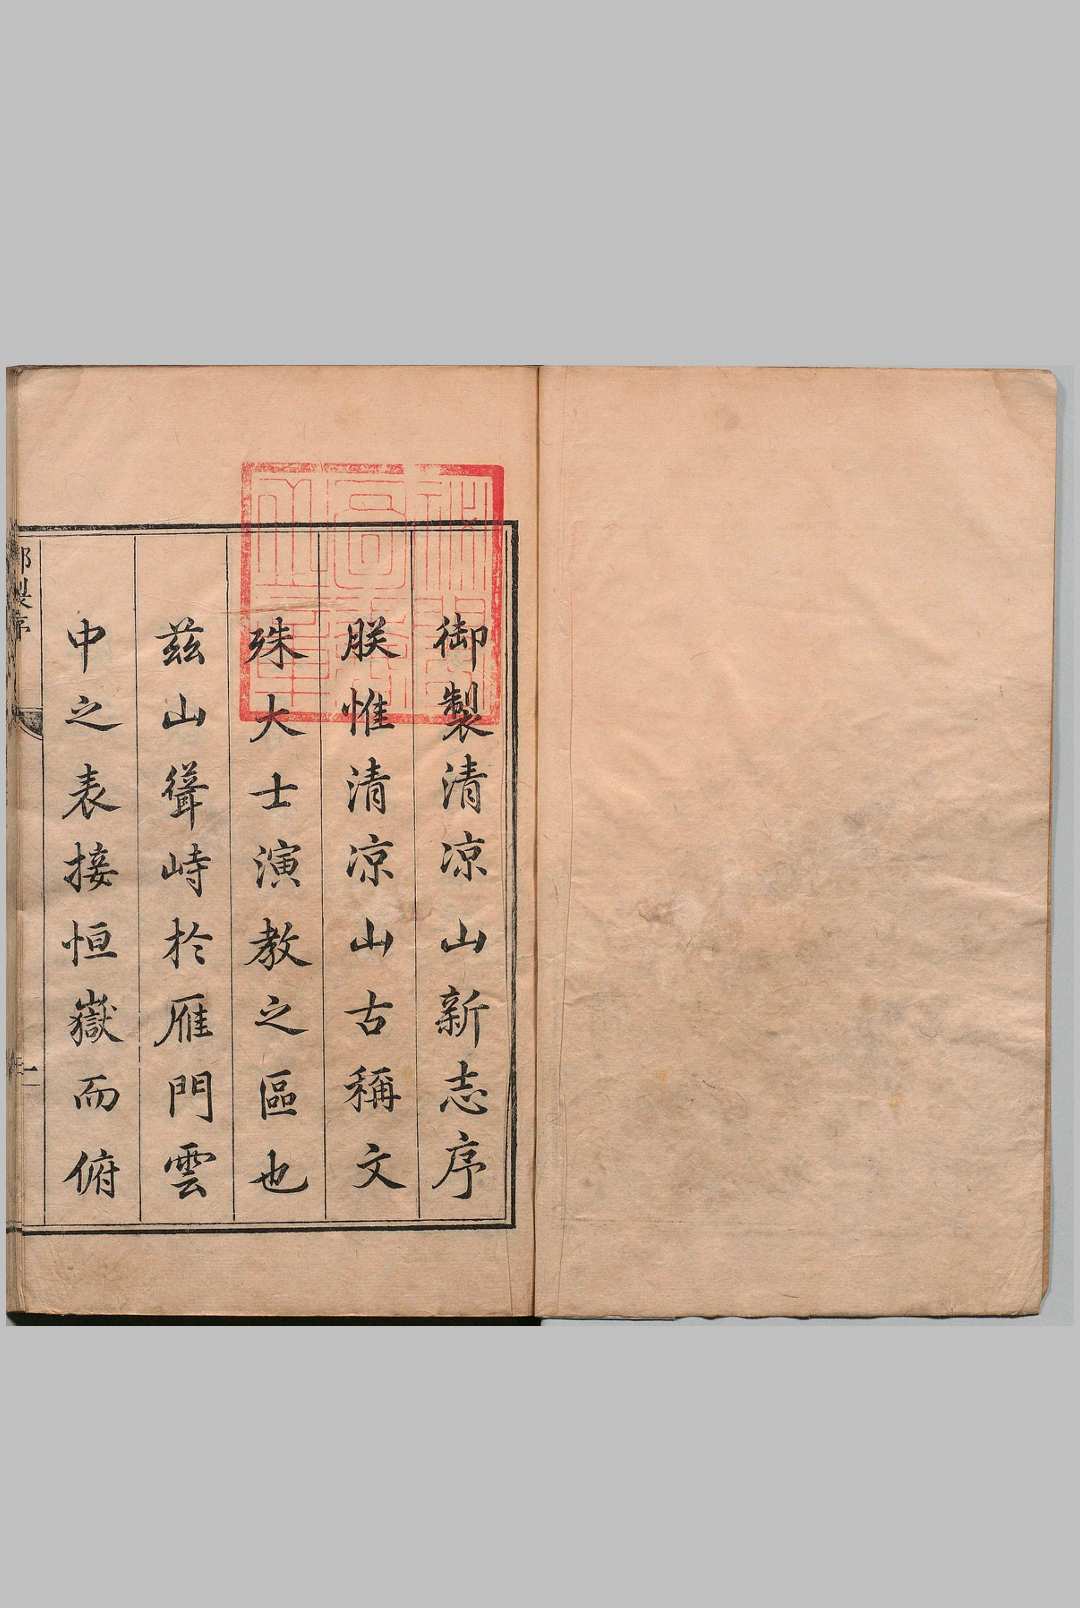 御製清凉山新志序
朕惟清凉山古稱文
殊大士演教之區也
兹山聳峙於雁門雲
中之表接恒嶽而俯
御製序
一